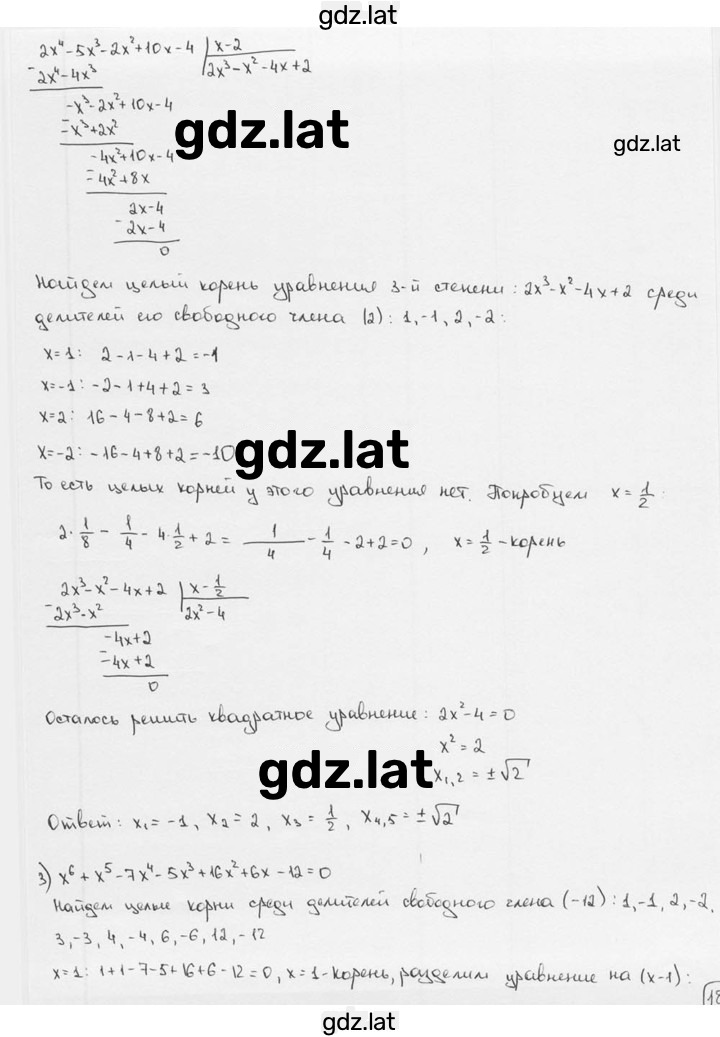 gdz.lat
2x⁴-5x³-2x²+10x-4 | x-2
-2x⁴-4x³ 2x³-x²-4x+2
-x³-2x²+10x-4
gdz.lat
-x³+2x²
gdz.lat
-4x²+10x-4
-4x²+8x
2x-4
-2x-4
0
Найдем целый корень уравнения 3-й степени: 2x³-x²-4x+2 среди
делителей его свободного члена (2): 1,-1, 2,-2:
x=1: 2-1-4+2=-1
x=-1: -2-1+4+2=3
x=2: 16-4-8+2=6
x=-2: -16-4+8+2=-10
gdz.lat
То есть целых корней у этого уравнения нет. Попробуем x=1/2:
2·1/8 - 1/4 - 4·1/2 + 2 = 1/4 - 1/4 - 2+2=0, x=1/2-корень
2x³-x²-4x+2 | x-1/2
-2x³-x² 2x²-4
-4x+2
-4x+2
0
Осталось решить квадратное уравнение: 2x²-4=0
x²=2
gdz.lat
x₁,₂=±√2
Ответ: x₁=-1, x₂=2, x₃=1/2, x₄,₅=±√2
3) x⁶+x⁵-7x⁴-5x³+16x²+6x-12=0
Найдем целые корни среди делителей свободного члена (-12): 1,-1, 2,-2,
3,-3, 4,-4, 6,-6, 12,-12
x=1: 1+1-7-5+16+6-12=0, x=1-корень, разделим уравнение на (x-1):
18
gdz.lat